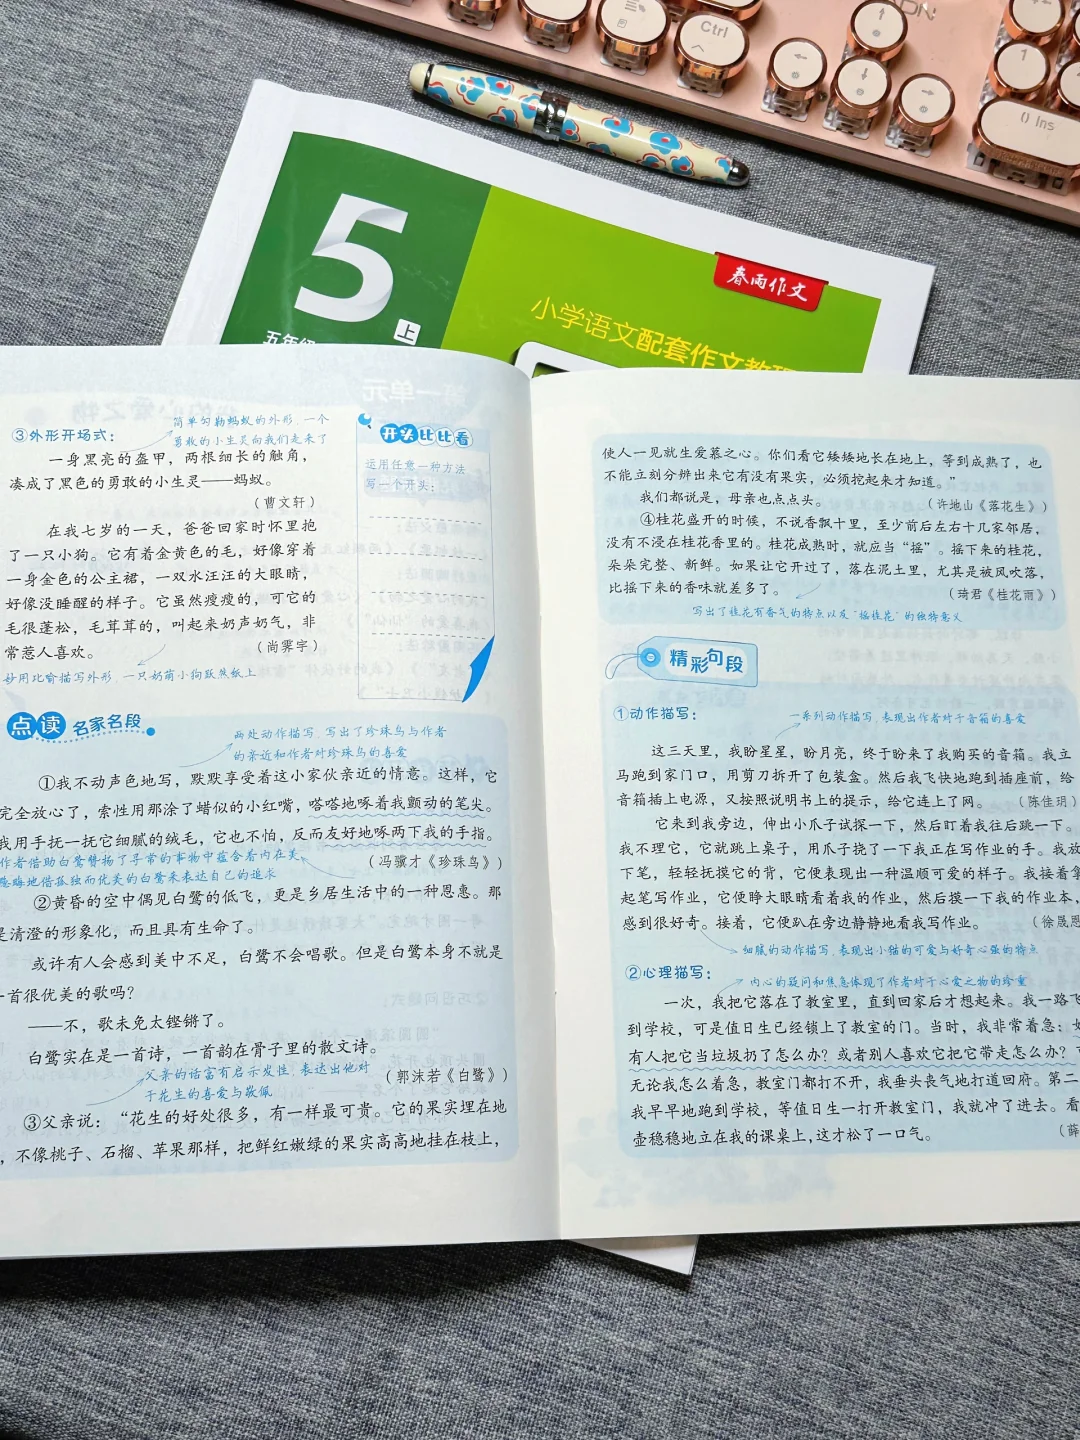 Ctrl
1
0 Ins
5
上
五年级
春雨作文
小学语文配套作文教
第一单元
③外形开场式：
简单勾勒蚂蚁的外形，一个
勇敢的小生灵向我们走来了
一身黑亮的盔甲，两根细长的触角，
凑成了黑色的勇敢的小生灵——蚂蚁。
（曹文轩）
在我七岁的一天，爸爸回家时怀里抱
了一只小狗。它有着金黄色的毛，好像穿着
一身金色的公主裙，一双水汪汪的大眼睛，
好像没睡醒的样子。它虽然瘦瘦的，可它的
毛很蓬松，毛茸茸的，叫起来奶声奶气，非
常惹人喜欢。
（尚霁宇）
妙用比喻描写外形，一只奶萌小狗跃然纸上
开头比比看
运用任意一种方法
写一个开头：
点读 名家名段
两处动作描写，写出了珍珠鸟与作者
的亲近和作者对珍珠鸟的喜爱
①我不动声色地写，默默享受着这小家伙亲近的情意。这样，它
完全放心了，索性用那涂了蜡似的小红嘴，嗒嗒地啄着我颤动的笔尖。
我用手抚一抚它细腻的绒毛，它也不怕，反而友好地啄两下我的手指。
（冯骥才《珍珠鸟》）
作者借助白鹭赞扬了寻常的事物中蕴含着内在美，
隐晦地借孤独而优美的白鹭来表达自己的追求
②黄昏的空中偶见白鹭的低飞，更是乡居生活中的一种恩惠。那
是清澄的形象化，而且具有生命了。
或许有人会感到美中不足，白鹭不会唱歌。但是白鹭本身不就是
一首很优美的歌吗？
——不，歌未免太铿锵了。
白鹭实在是一首诗，一首韵在骨子里的散文诗。
（郭沫若《白鹭》）
父亲的话富有启示发性，表达出他对
于花生的喜爱与敬佩
③父亲说：“花生的好处很多，有一样最可贵。它的果实埋在地
，不像桃子、石榴、苹果那样，把鲜红嫩绿的果实高高地挂在枝上，
使人一见就生爱慕之心。你们看它矮矮地长在地上，等到成熟了，也
不能立刻分辨出来它有没有果实，必须挖起来才知道。”
我们都说是，母亲也点点头。
（许地山《落花生》）
④桂花盛开的时候，不说香飘十里，至少前后左右十几家邻居，
没有不浸在桂花香里的。桂花成熟时，就应当“摇”。摇下来的桂花，
朵朵完整、新鲜。如果让它开过了，落在泥土里，尤其是被风吹落，
比摇下来的香味就差多了。
（琦君《桂花雨》）
写出了桂花有香气的特点以及“摇桂花”的独特意义
精彩句段
①动作描写：
一系列动作描写，表现出作者对于音箱的喜爱
这三天里，我盼星星，盼月亮，终于盼来了我购买的音箱。我立
马跑到家门口，用剪刀拆开了包装盒。然后我飞快地跑到插座前，给
音箱插上电源，又按照说明书上的提示，给它连上了网。
（陈佳玥）
它来到我旁边，伸出小爪子试探一下，然后盯着我往后跳一下。
我不理它，它就跳上桌子，用爪子挠了一下我正在写作业的手。我放
下笔，轻轻抚摸它的背，它便表现出一种温顺可爱的样子。我接着拿
起笔写作业，它便睁大眼睛看着我的作业，然后摸一下我的作业本，
感到很好奇。接着，它便趴在旁边静静地看我写作业。
（徐晟恩
细腻的动作描写，表现出小猫的可爱与好奇心强的特点
②心理描写：
内心的疑问和焦急体现了作者对于心爱之物的珍重
一次，我把它落在了教室里，直到回家后才想起来。我一路飞
到学校，可是值日生已经锁上了教室的门。当时，我非常着急：
有人把它当垃圾扔了怎么办？或者别人喜欢它把它带走怎么办？
无论我怎么着急，教室门都打不开，我垂头丧气地打道回府。第二
我早早地跑到学校，等值日生一打开教室门，我就冲了进去。看
壶稳稳地立在我的课桌上，这才松了一口气。
（薛